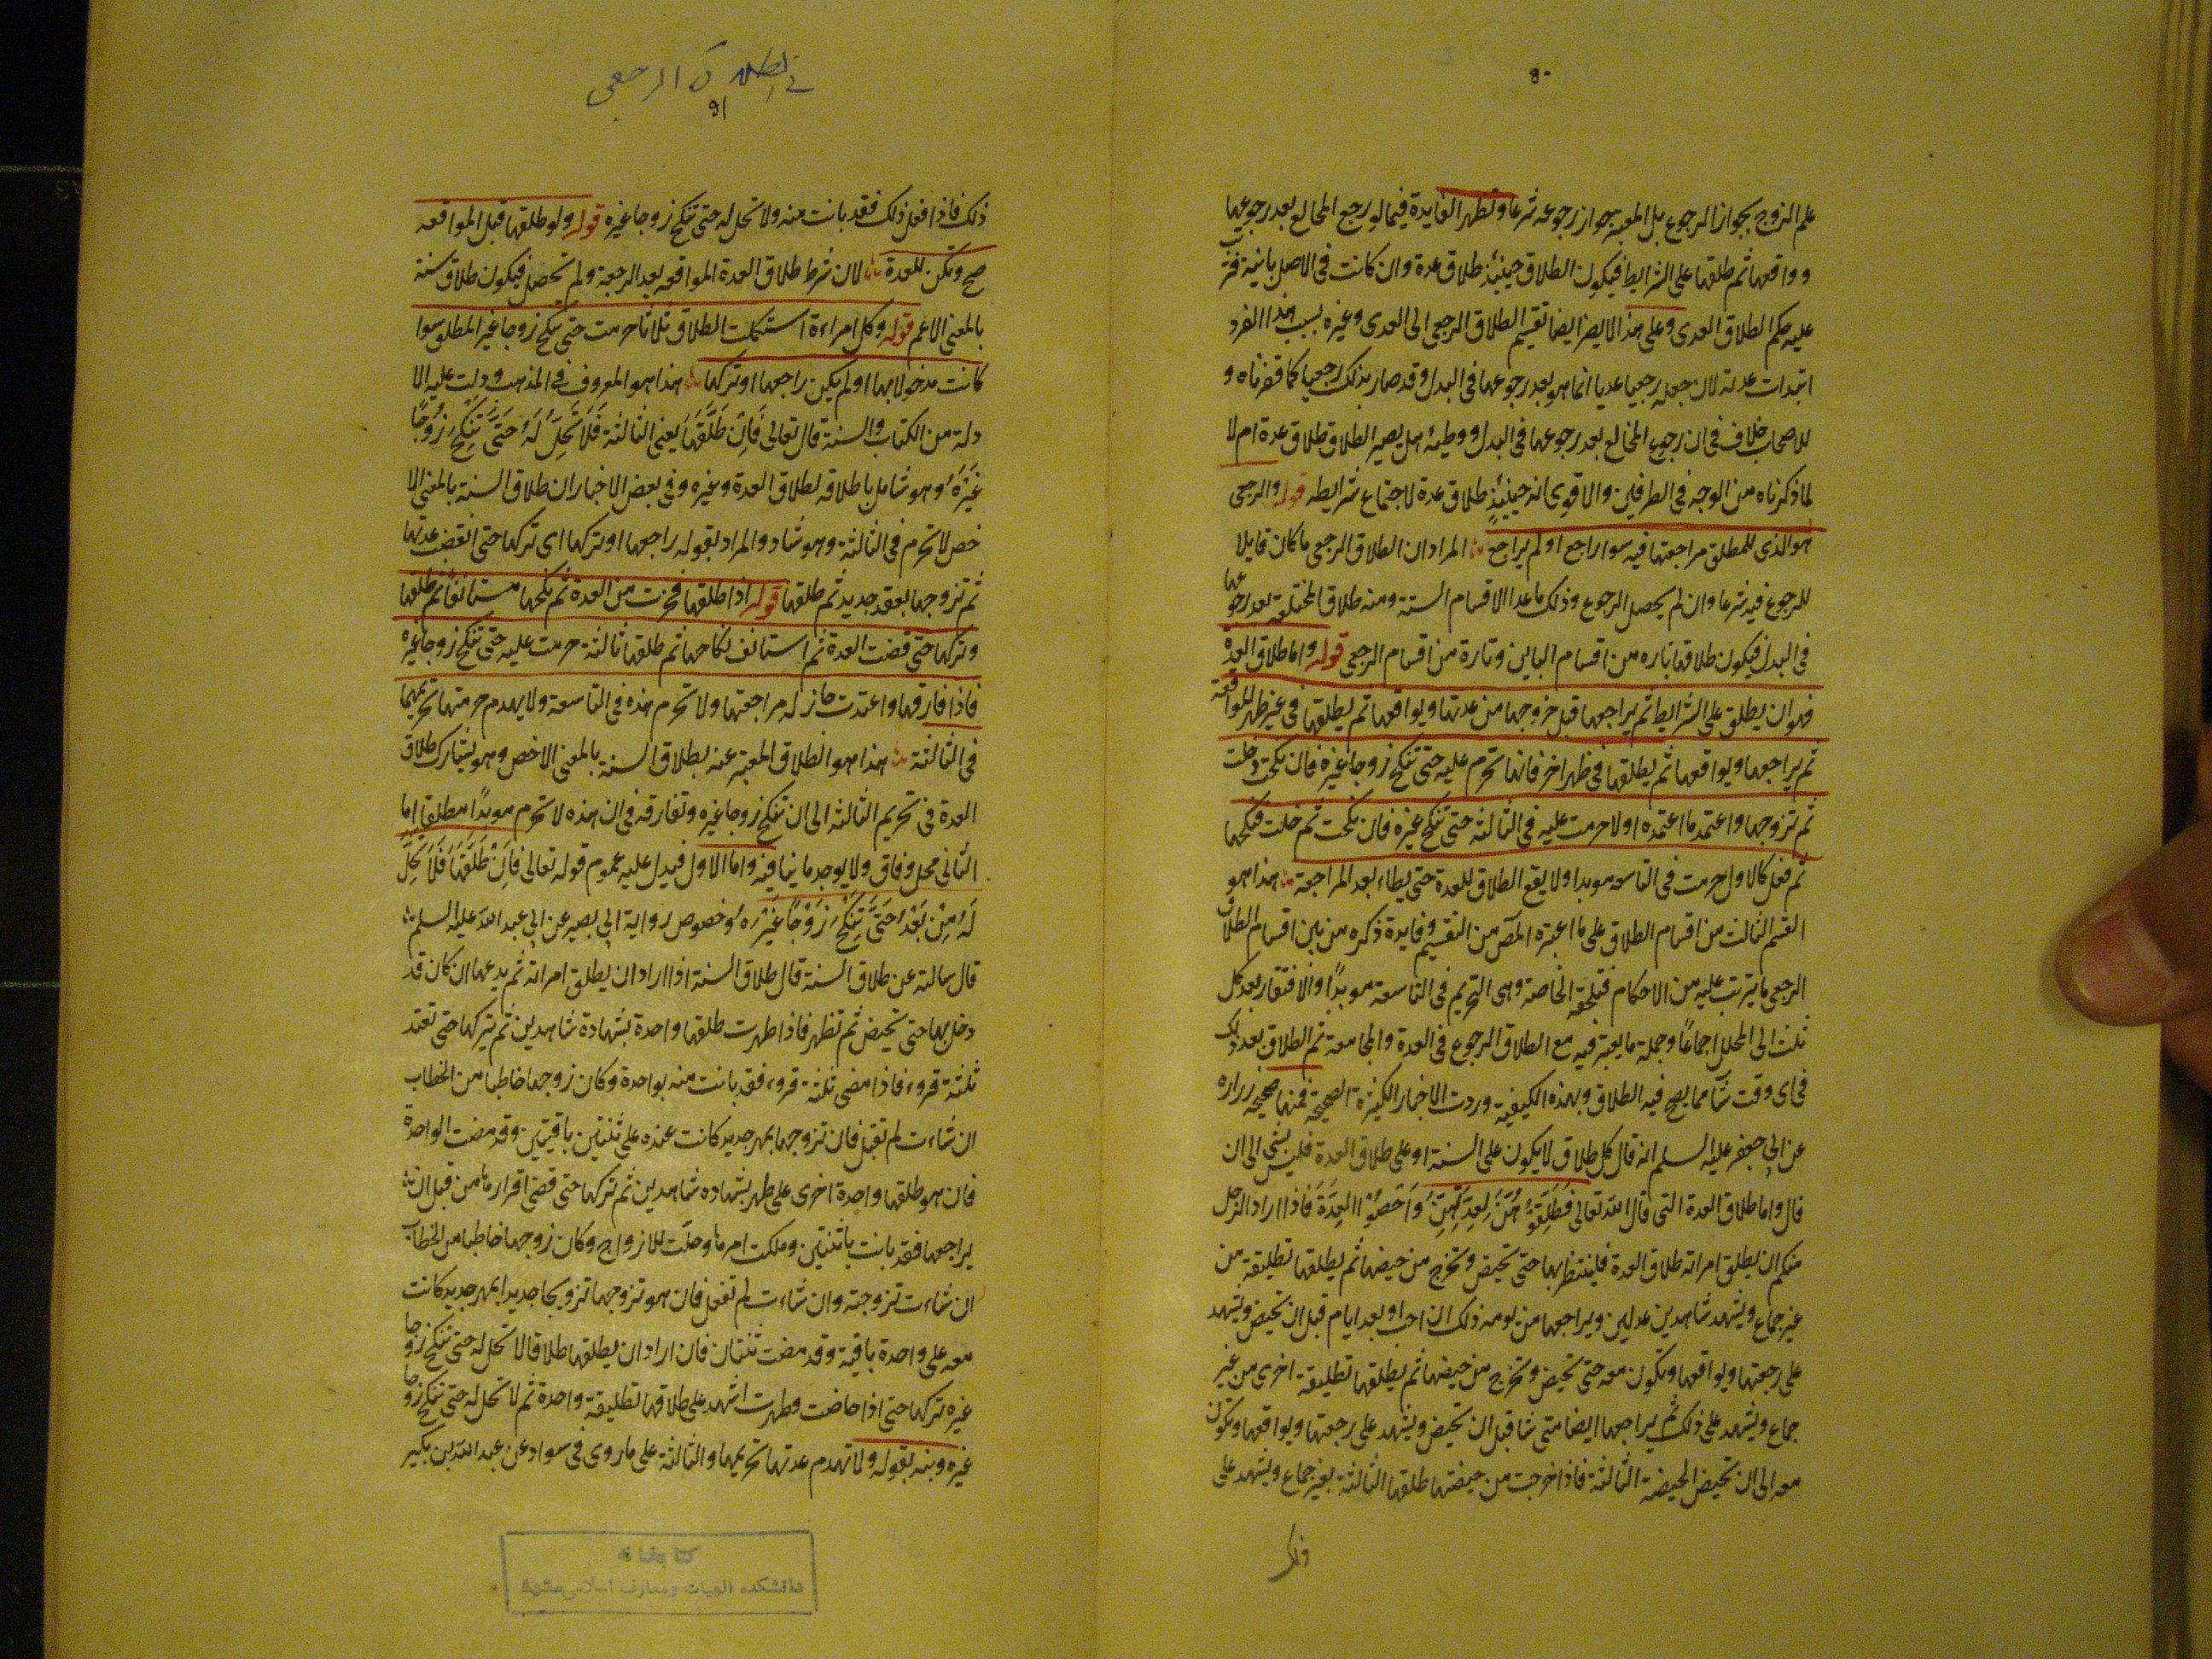 علم الزوج بجواز الرجوع بل المعتبر جواز رجوعه شرعا وتظهر الفايدة فيما لو رجع المخالع بعد رجوعها
وواقعها ثم طلقها على الشرايط فيكون الطلاق حينئذ طلاق عدة وان كانت في الاصل باينة فترتب
عليه حكم الطلاق العدى وعلى هذا لا يضر ايضا تقسيم الطلاق الرجعى الى العدى وغيره بسبب هذا الفرد
ابتدات عدته لان جعله رجعيا عديا انما هو بعد رجوعها في البدل وقد صار بذلك رجعيا كما قررناه و
للاصحاب خلاف في ان رجوع المخالع بعد رجوعها في البدل ووطيه هل يصير الطلاق طلاق عدة ام لا
لما ذكرناه من الوجه في الطرفين والاقوى انه حينئذٍ طلاق عدة لاجتماع شرايطه قوله والرجعى
هو الذى للمطلق مراجعتها فيه سوا راجع او لم يراجع المراد ان الطلاق الرجعى ما كان قابلا
للرجوع فيه شرعا وان لم يحصل الرجوع وذلك ما عدا الاقسام الستة ومنه طلاق المختلعة بعد رجوعها
في البدل فيكون طلاقها تاره من اقسام الباين وتارة من اقسام الرجعى قوله واما طلاق العدة
فهو ان يطلق على الشرايط ثم يراجعها قبل خروجها من عدتها ويواقعها ثم يطلقها في غير طهر المواقعة
ثم يراجعها ويواقعها ثم يطلقها في طهر اخر فانها تحرم عليه حتى تنكح زوجا غيره فان نكحت وخلت
ثم تزوجها واعتمد ما اعتمده اولا حرمت عليه في الثالثة حتى تنكح غيره فان نكحت ثم خلت فنكحها
ثم فعل كالاول حرمت في التاسعه موبدا ولا يقع الطلاق للعدة حتى يطاء بعد المراجعة هذا هو
القسم الثالث من اقسام الطلاق على ما اعتبره المص من التقسيم وفايدة ذكره من بين اقسام الطلاق
الرجعى ما يترتب عليه من الاحكام فتلحقه الخاصة وهى التحريم في التاسعة موبدًا والافتقار بعد كل
ثلث الى المحلل اجماعًا وجملة ما يعتبر فيه مع الطلاق الرجوع في العدة والمجامعة ثم الطلاق بعد ذلك
في اى وقت شآ مما يصح فيه الطلاق وبهذه الكيفية وردت الاخبار الكثيرة الصحيحة فمنها صحيحه زراره
عن ابى جعفر عليه السلم انه قال كل طلاق لا يكون على السنة او على طلاق العدة فليس بشى الى ان
قال واما طلاق العدة التى قال الله تعالى فَطَلِّقُوهُنَّ لِعِدَّتِهِنَّ وَاَحْصُوا العِدَّةَ فاذا اراد الرجل
منكم ان يطلق امراته طلاق العدة فلينتظر بها حتى تحيض وتخرج من حيضها ثم يطلقها تطليقة من
غير جماع ويشهد شاهدين عدلين ويراجعها من يومه ذلك ان احب او بعد ايام قبل ان تحيض ويشهد
على رجعتها ويواقعها وتكون معه حتى تحيض وتخرج من حيضها ثم يطلقها تطليقة اخرى من غير
جماع ويشهد على ذلك ثم يراجعها ايضا متى شا قبل ان تحيض ويشهد على رجعتها ويواقعها وتكون
معه الى ان تحيض الحيضة الثالثة فاذا خرجت من حيضتها طلقها الثالثة بغير جماع ويشهد على
ذلك
في الطلاق الرجعى
٩١
ذلك فاذا فعل ذلك فقد بانت منه ولا تحل له حتى تنكح زوجا غيره قوله ولو طلقها قبل المواقعه
صح ولكن للعدة لان شرط طلاق العدة المواقعه بعد الرجعة ولم تحصل فيكون طلاق سنة
بالمعنى الاعم قوله وكل امراءة استكملت الطلاق ثلاثا حرمت حتى ينكح زوجا غير المطلق سوا
كانت مدخولا بها او لم يكن راجعها او تركها هذا هو المعروف في المذهب ودلت عليه الا
دلة من الكتاب والسنة قال تعالى فَاِنْ طَلَّقَهَا يعنى الثالثة فَلَا تَحِلُّ لَهُ حَتَّى تَنْكِحَ زَوْجًا
غَيْرَهُ وهو شامل باطلاقه لطلاق العدة وغيره وفى بعض الاخبار ان طلاق السنة بالمعنى الا
خص لا تحرم في الثالثة وهو شاد والمراد بقوله راجعها او تركها اى تركها حتى انقضت عدتها
ثم تزوجها بعقد جديد ثم طلقها قوله اذا طلقها فخرجت من العدة ثم نكحها مستانفًا ثم طلقها
وتركها حتى قضت العدة ثم استانف نكاحها ثم طلقها ثالثة حرمت عليه حتى تنكح زوجا غيره
فاذا فارقها واعتدت جاز له مراجعتها ولا تحرم هذه في التاسعة ولا يهدم حرمتها تحريمها
في الثالثة هذا هو الطلاق المعتبر عنه بطلاق السنة بالمعنى الاخص وهو يشارك طلاق
العدة في تحريم الثالثة الى ان تنكح زوجا غيره وتفارقه في ان هذه لا تحرم موبدًا مطلقا اما
الثانى محل وفاق ولا يوجد ما ينافيه واما الاول فيدل عليه عموم قوله تعالى فَاِنْ طَلَّقَهَا فَلَا تَحِلُّ
لَهُ مِنْ بَعْدُ حَتَّى تَنْكِحَ زَوْجًا غَيْرَهُ وخصوص رواية ابى بصير عن ابى عبد الله عليه السلم
قال سالته عن طلاق السنة قال طلاق السنة اذا اراد ان يطلق امراته ثم يدعها ان كان قد
دخل بها حتى تحيض ثم تطهر فاذا طهرت طلقها واحدة بشهادة شاهدين ثم يتركها حتى تعتد
ثلثة قروء فاذا مضى ثلثة قروء فقد بانت منه بواحدة وكان زوجها خاطبا من الخطاب
ان شاءت لم تفعل فان تزوجها بمهر جديد كانت عنده على ثنتين باقيتين وقد مضت الواحدة
فان هو طلقها واحدة اخرى على طهر بشهاده شاهدين ثم تركها حتى تمضى اقراءها من قبل ان
يراجعها فقد بانت باثنتين وملكت امرها وحلت للازواج وكان زوجها خاطبا من الخطاب
ان شاءت تزوجته وان شاءت لم تفعل فان هو تزوجها تزويجا جديدا بمهر جديد كانت
معه على واحدة باقية وقد مضت ثنتان فان اراد ان يطلقها طلاقا لا تحل له حتى تنكح زوجا
غيره تركها حتى اذا حاضت وطهرت اشهد على طلاقها تطليقة واحدة ثم لا تحل له حتى تنكح زوجا
غيره ونبه بقوله ولا تهدم عدتها تحريمها والثالثة على ما روى في سواد عن عبد الله بن بكير
دانشكده الهيات ومعارف اسلامى مشهد